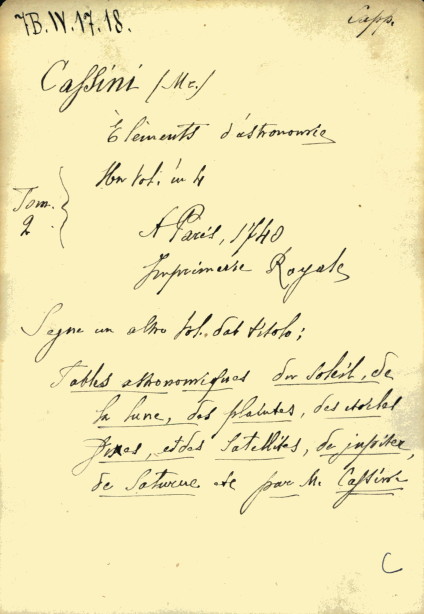 7B.IV.17.18.
Capp.
Cassini (Mr.)
Èlèments d'astronomie
Un vol. in 4
Tom. 2
A Paris, 1740
Imprimerie Royale
Segue un altro vol. dal titolo;
Tables astronomiques du Soleil, de
la lune, des planètes, des etoiles
fixes, et des Satellites, de jupiter,
de Saturne etc par M. Cassini
C